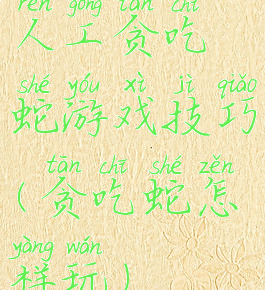 rén gōng tān chī
人工贪吃
shé yóu xì jì qiǎo
蛇游戏技巧
tān chī shé zěn
(贪吃蛇怎
yàng wán
样玩)